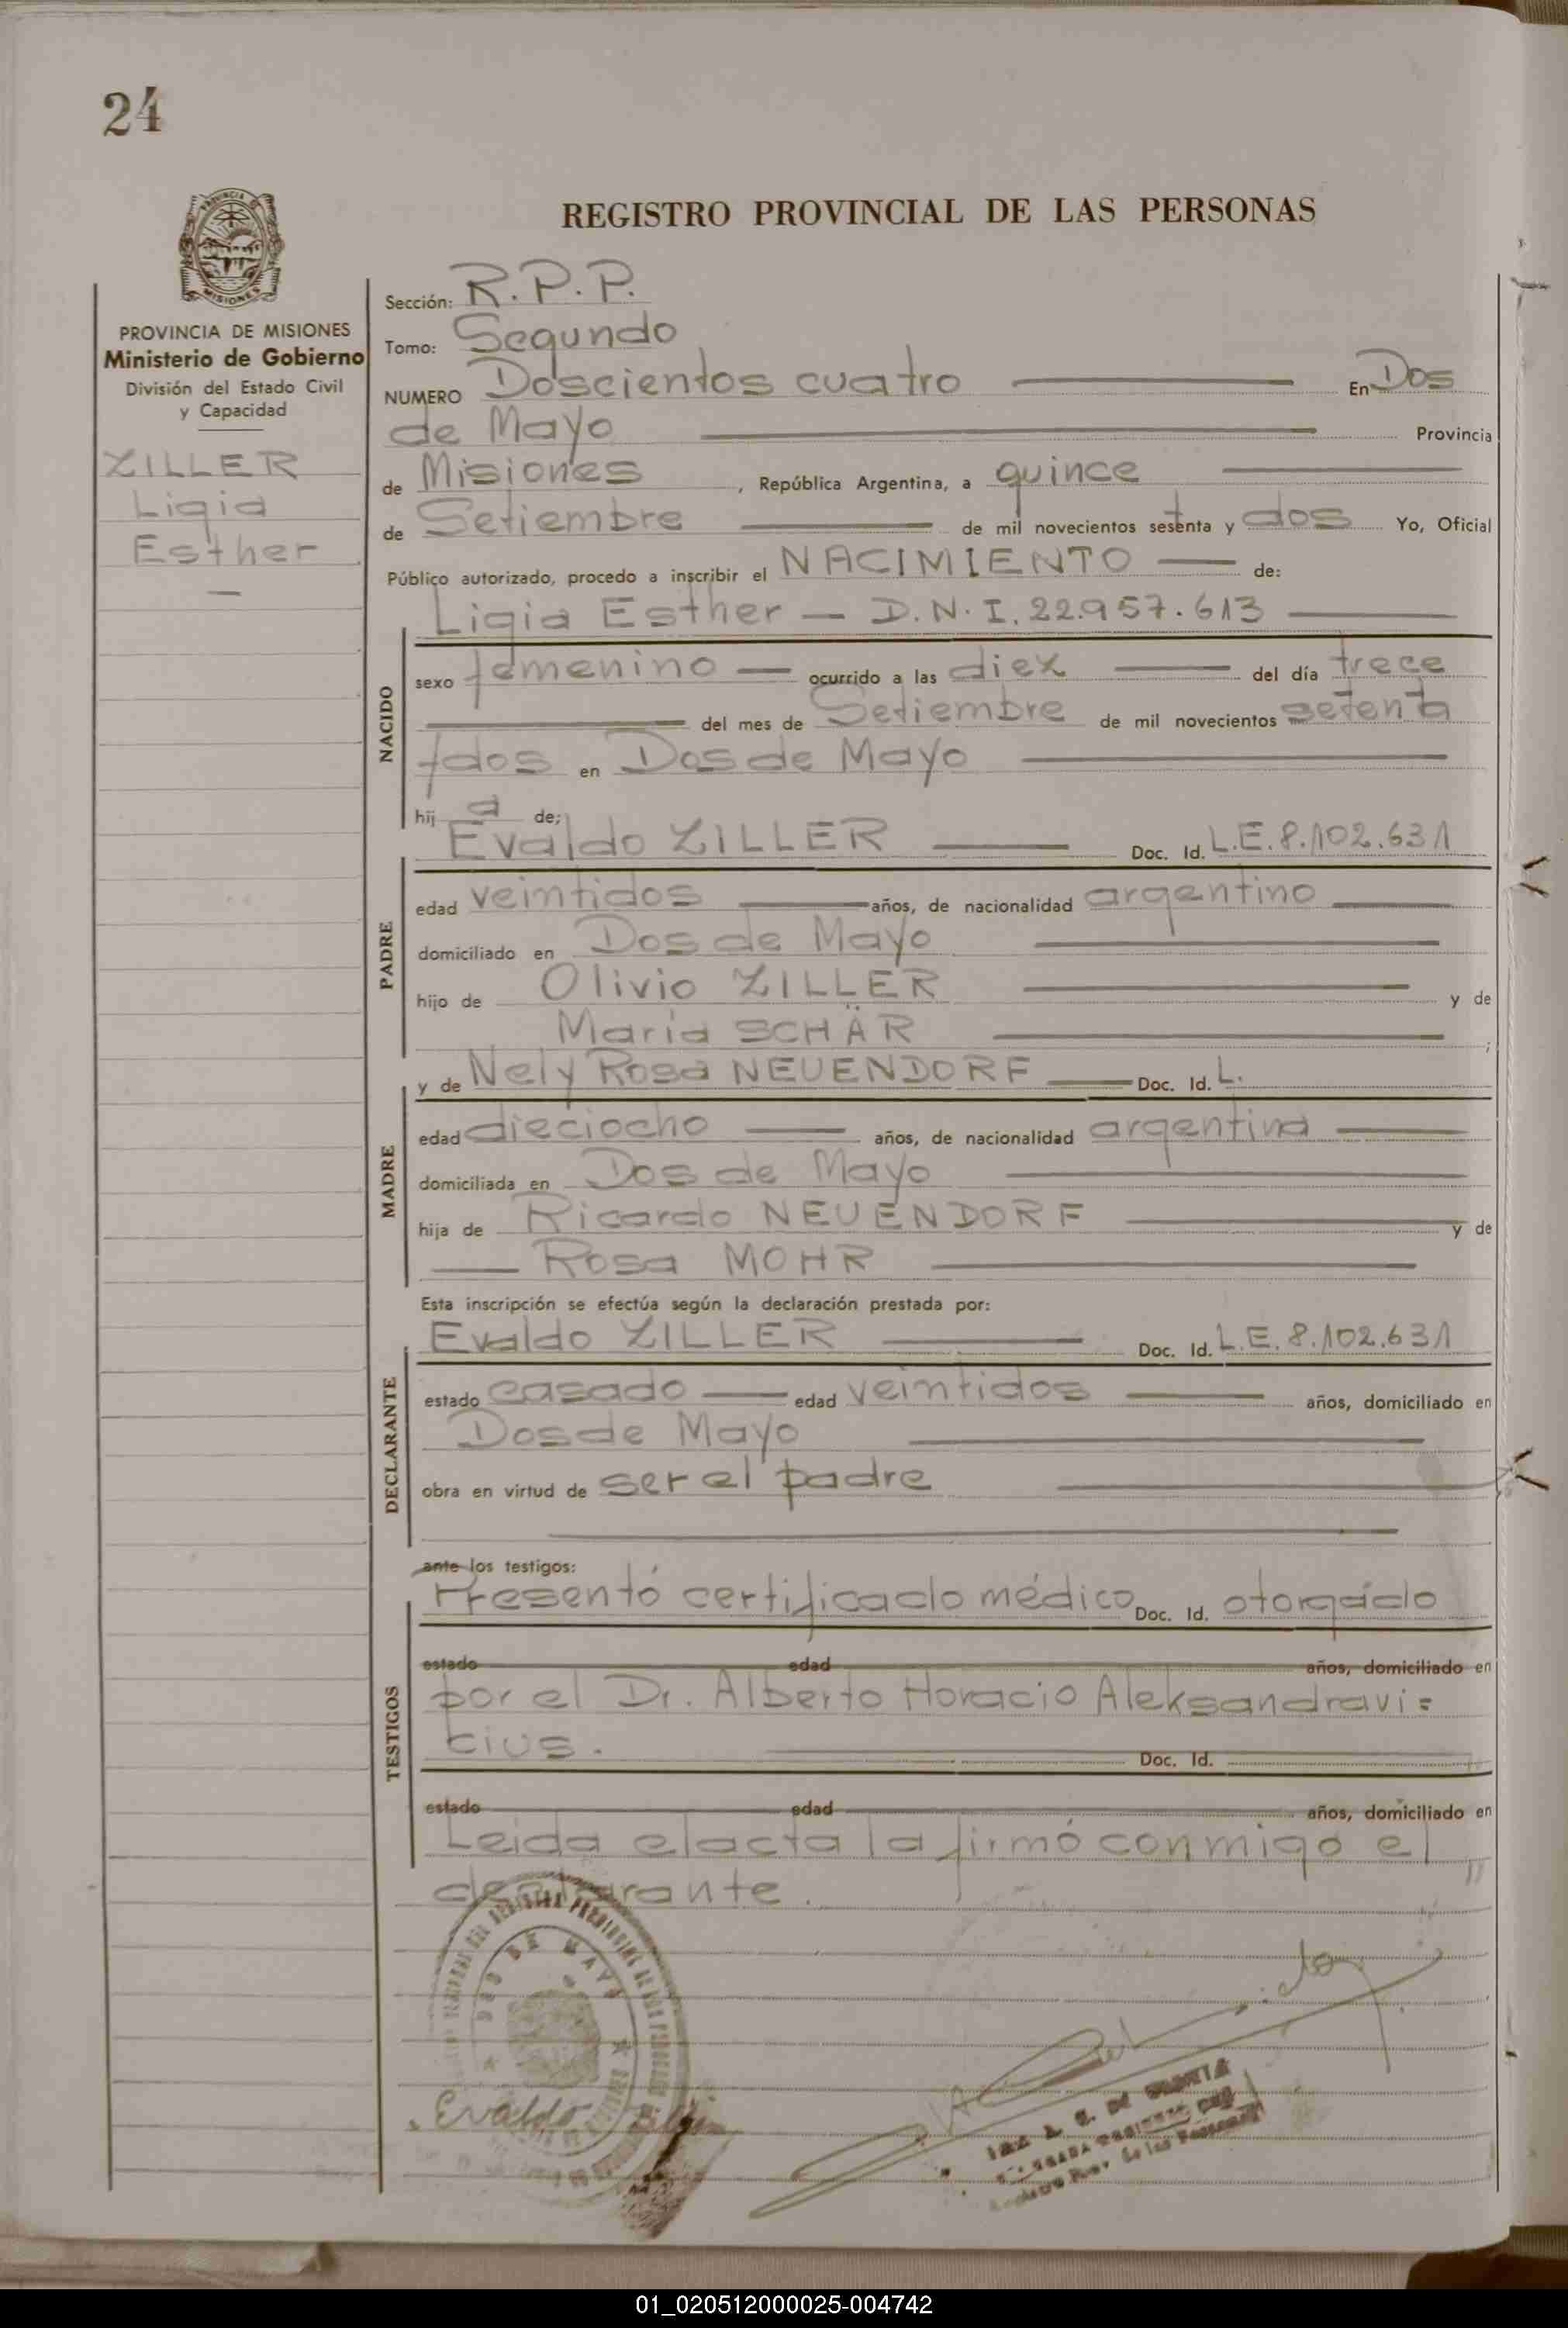 24
REGISTRO PROVINCIAL DE LAS PERSONAS
PROVINCIA DE MISIONES
Ministerio de Gobierno
División del Estado Civil
y Capacidad
ZILLER
Ligia
Esther
Sección: R.P.P.
Tomo: Segundo
NUMERO Doscientos cuatro En Dos
de Mayo Provincia
de Misiones , República Argentina, a quince
de Setiembre de mil novecientos sesenta y dos Yo, Oficial
Público autorizado, procedo a inscribir el NACIMIENTO de:
Ligia Esther — D.N.I. 22.957.613
NACIDO
sexo femenino ocurrido a las diez del día trece
del mes de Setiembre de mil novecientos setenta
y dos en Dos de Mayo
hij a de:
Evaldo ZILLER Doc. Id. L.E. 8.102.631
PADRE
edad veintidos años, de nacionalidad argentino
domiciliado en Dos de Mayo
hijo de Olivio ZILLER y de
María SCHÄR ;
y de Nely Rosa NEUENDORF Doc. Id. L.
MADRE
edad dieciocho años, de nacionalidad argentina
domiciliada en Dos de Mayo
hija de Ricardo NEUENDORF y de
Rosa MOHR
Esta inscripción se efectúa según la declaración prestada por:
Evaldo ZILLER Doc. Id. L.E. 8.102.631
DECLARANTE
estado casado edad veintidos años, domiciliado en
Dos de Mayo
obra en virtud de ser el padre
ante los testigos:
Presentó certificado médico Doc. Id. otorgado
TESTIGOS
estado edad años, domiciliado en
por el Dr. Alberto Horacio Aleksandravi=
cius. Doc. Id.
estado edad años, domiciliado en
Leida el acta la firmó conmigo el
declarante.
DOS DE MAYO
Evaldo Ziller
01_020512000025-004742